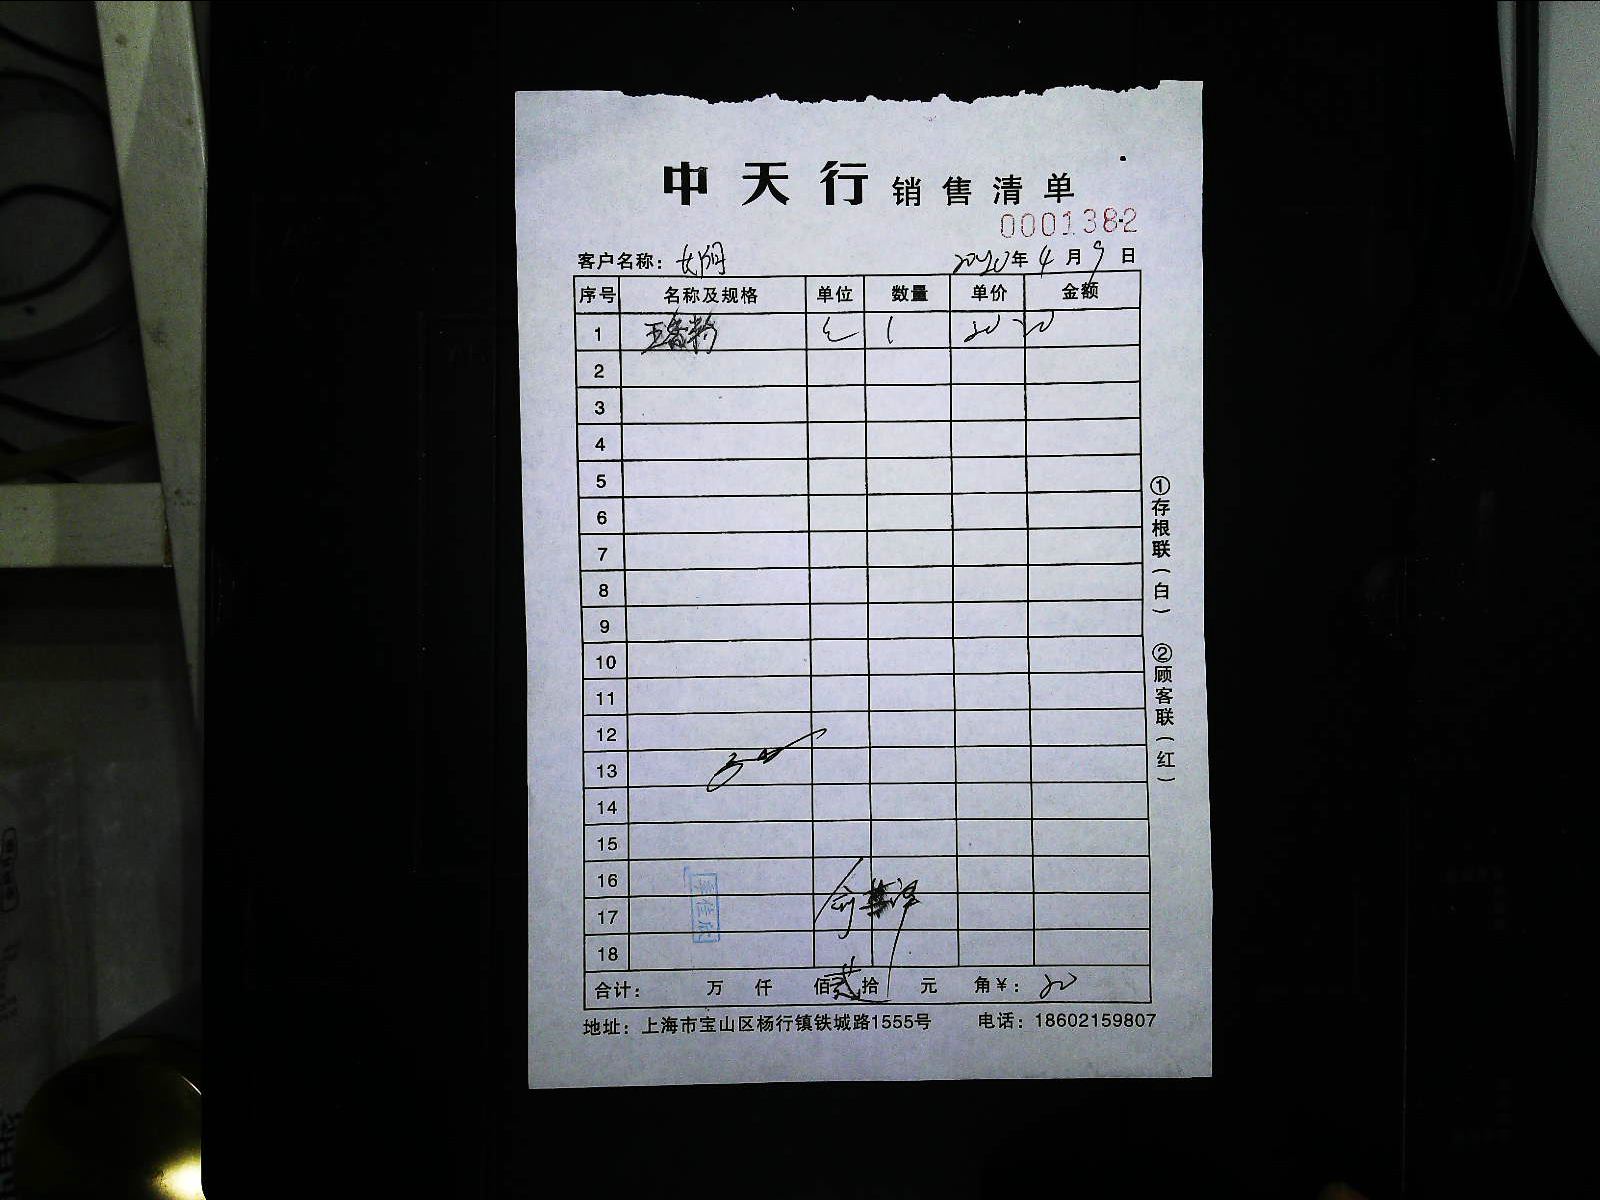 中天行 销售清单
0001382
客户名称： 2020年4月9日
序号 名称及规格 单位 数量 单价 金额
1 五香粉 1 20 20
2
3
4
5
6
7
8
9
10
11
12
13
14
15
16
17
18
合计： 万 仟 佰 贰拾 元 角￥：20
地址：上海市宝山区杨行镇铁城路1555号 电话：18602159807
①存根联（白）
②顾客联（红）